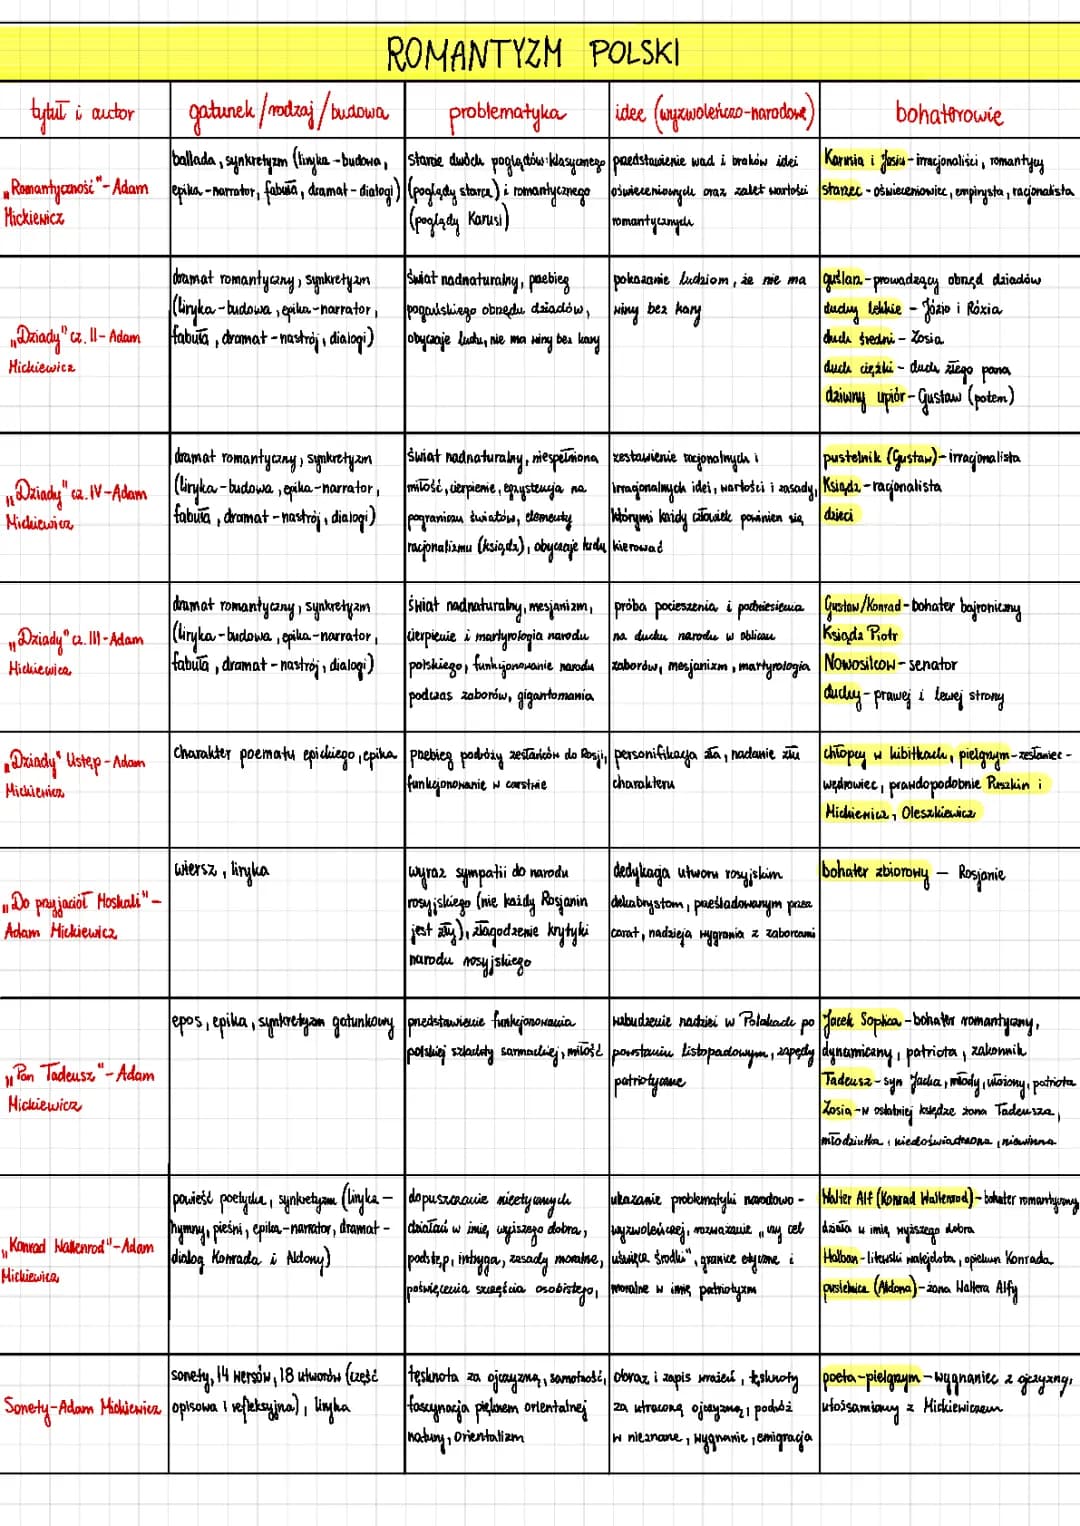 ROMANTYZM POLSKI
tytuł i autor
gatunek/rodzaj/budowa
problematyka
idee (wyzwoleńczo-narodowe)
bohaterowie
„Romantyczność" - Adam
Mickiewicz
ballada, synkretyzm (liryka - budowa,
epika - narrator, fabuła, dramat - dialogi)
starcie dwóch poglądów: klasycznego
(poglądy starca) i romantycznego
(poglądy Karusi)
przedstawienie wad i braków idei
oświeceniowych oraz zalet wartości
romantycznych
Karusia i Jasiu - irracjonaliści, romantycy
starzec - oświeceniowiec, empirysta, racjonalista
„Dziady" cz. II - Adam
Mickiewicz
dramat romantyczny, synkretyzm
(liryka - budowa, epika - narrator,
fabuła, dramat - nastrój, dialogi)
świat nadnaturalny, przebieg
pogańskiego obrzędu dziadów,
obyczaje ludu, nie ma winy bez kary
pokazanie ludziom, że nie ma
winy bez kary
guślarz - prowadzący obrzęd dziadów
duchy lekkie - Józio i Rózia
duch średni - Zosia
duch ciężki - duch złego pana
dziwny upiór - Gustaw (potem)
„Dziady" cz. IV - Adam
Mickiewicz
dramat romantyczny, synkretyzm
(liryka - budowa, epika - narrator,
fabuła, dramat - nastrój, dialogi)
świat nadnaturalny, niespełniona
miłość, cierpienie, egzystencja na
pograniczu światów, elementy
racjonalizmu (ksiądz), obyczaje ludu
zestawienie racjonalnych i
irracjonalnych idei, wartości i zasady,
którymi każdy człowiek powinien się
kierować
pustelnik (Gustaw) - irracjonalista
Ksiądz - racjonalista
dzieci
„Dziady" cz. III - Adam
Mickiewicz
dramat romantyczny, synkretyzm
(liryka - budowa, epika - narrator,
fabuła, dramat - nastrój, dialogi)
świat nadnaturalny, mesjanizm,
cierpienie i martyrologia narodu
polskiego, funkcjonowanie narodu
podczas zaborów, gigantomania
próba pocieszenia i podniesienia
na duchu narodu w obliczu
zaborów, mesjanizm, martyrologia
Gustaw/Konrad - bohater bajroniczny
Ksiądz Piotr
Nowosilcow - senator
duchy - prawej i lewej strony
„Dziady" Ustęp - Adam
Mickiewicz
charakter poematu epickiego, epika
przebieg podróży zesłańców do Rosji,
funkcjonowanie w carstwie
personifikacja zła, nadanie złu
charakteru
chłopcy w kibitkach, pielgrzym - zesłaniec -
wędrowiec, prawdopodobnie Puszkin i
Mickiewicz, Oleszkiewicz
„Do przyjaciół Moskali" -
Adam Mickiewicz
wiersz, liryka
wyraz sympatii do narodu
rosyjskiego (nie każdy Rosjanin
jest zły), złagodzenie krytyki
narodu rosyjskiego
dedykacja utworu rosyjskim
dekabrystom, prześladowanym przez
carat, nadzieja wygrania z zaborcami
bohater zbiorowy - Rosjanie
„Pan Tadeusz" - Adam
Mickiewicz
epos, epika, synkretyzm gatunkowy
przedstawienie funkcjonowania
polskiej szlachty sarmackiej, miłość
wzbudzenie nadziei w Polakach po
powstaniu listopadowym, zapędy
patriotyczne
Jacek Soplica - bohater romantyczny,
dynamiczny, patriota, zakonnik
Tadeusz - syn Jacka, młody, ułożony, patriota
Zosia - w ostatniej księdze żona Tadeusza,
młodziutka, niedoświadczona, niewinna
„Konrad Wallenrod" - Adam
Mickiewicz
powieść poetycka, synkretyzm (liryka -
hymny, pieśni, epika - narrator, dramat -
dialog Konrada i Aldony)
dopuszczanie nieetycznych
działań w imię wyższego dobra,
podstęp, intryga, zasady moralne,
poświęcenia szczęścia osobistego,
ukazanie problematyki narodowo -
wyzwoleńczej, rozważanie „czy cel
uświęca środki", granice etyczne i
moralne w imię patriotyzm
Walter Alf (Konrad Wallenrod) - bohater romantyczny,
działa w imię wyższego dobra
Halban - litewski wajdelota, opiekun Konrada
pustelnica (Aldona) - żona Waltera Alfy
Sonety - Adam Mickiewicz
sonety, 14 wersów, 18 utworów (część
opisowa i refleksyjna), liryka
tęsknota za ojczyzną, samotność,
fascynacja pięknem orientalnej
natury, orientalizm
obraz i zapis wrażeń, tęsknoty
za utraconą ojczyzną, podróż
w nieznane, wygnanie, emigracja
poeta - pielgrzym - wygnaniec z ojczyzny,
utożsamiany z Mickiewiczem